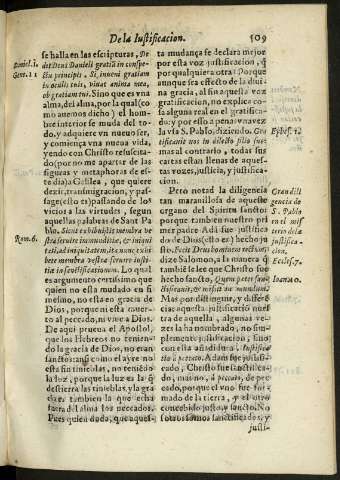 De la Iustificacion. 509
Daniel. 1.
Gene. 11
Rom. 6.
se halla en las escripturas, De-
dit Deus Danieli gratiã in conspe-
ctu principis. Si inueni gratiam
in oculis tuis, viuat anima mea,
ob gratiam tui. Sino que es vna
alma, del alma, por la qual (co
mo auemos dicho) el hom-
bre interior se muda del to-
do, y adquiere vn nueuo ser,
y comiença vna nueua vida,
yendo con Christo resuscita-
do (por no me apartar de las
figuras y metaphoras de es-
te dia) a Galilea, que quiere
dezir, transmigracion, y pas-
sage (esto es) passando de los
vicios a las virtudes, segun
aquellas palabras de Sant Pa
blo. Sicut exhibuistis membra ve
stra seruire inmunditiæ, & iniqui
tati, ad iniquitatem, ita nunc exi
bete membra vestra seruire iusti-
tiæ in sanctificationem. Lo qual
es argumento certissimo que
quien no esta mudado en si
mesmo, no esta en gracia de
Dios, porque ni esta muer-
to al peccado, ni viue a Dios.
De aqui prueua el Apostol,
que los Hebreos no tenien-
do la gracia de Dios, no eran
sanctos: ansi como el ayre no
esta sin tinieblas, no teniẽdo
la luz, porque la luz es la q̃
destierra las tinieblas, y la gra
cia es tambien la que echa
fuera del alma los peccados.
Pues quien duda, que aques-
ta mudança se declara mejor
por esta voz justificacion, q̃
por qualquiera otra? Porque
aunque sea effecto de la diui
na gracia, si por aquesta voz
gratificacion, no explica co-
sa alguna real en el gratifica-
do: y por esso a penas va vez
la vsa S. Pablo, diziendo. Gra
tificauit nos in dilecto filio suo:
mas al contrario, todas sus
cartas estan llenas de aques-
tas vozes, justicia, y justifica-
cion.
Pero notad la diligencia
tan marauillosa de aqueste
organo del Spiritu sancto:
porque tambien nuestro pri
mer padre Adam fue criado
de Dios (esto es) hecho ju-
sto. Fecit Deus hominem rectum:
dize Salomon, a la manera q̃
tambiẽ se lee que Christo fue
hecho sancto, Quem pater san-
ctificauit, & misit in mundum.
Mas por distinguir, y differẽ
ciar aquesta justificacion nues
tra de aquella, algunas vezes
la ha nombrado, no sim-
plemente justificacion, sino
con esta añididura: Iustificatio
à peccato. Adam fue justifi-
cado, Christo fue sanctifica-
do, mas no, à peccato, de pec-
cado, porque el vno fue for-
mado de la tierra, y el otro
concebido justo, y sancto. No
sotros somos sanctificados, y
Ephes. 1.
Gran dili
gencia de
S. Pablo
en el mist
erio de la
justifica-
cion.
Eccles. 7.
Ioan. 10.
justi-